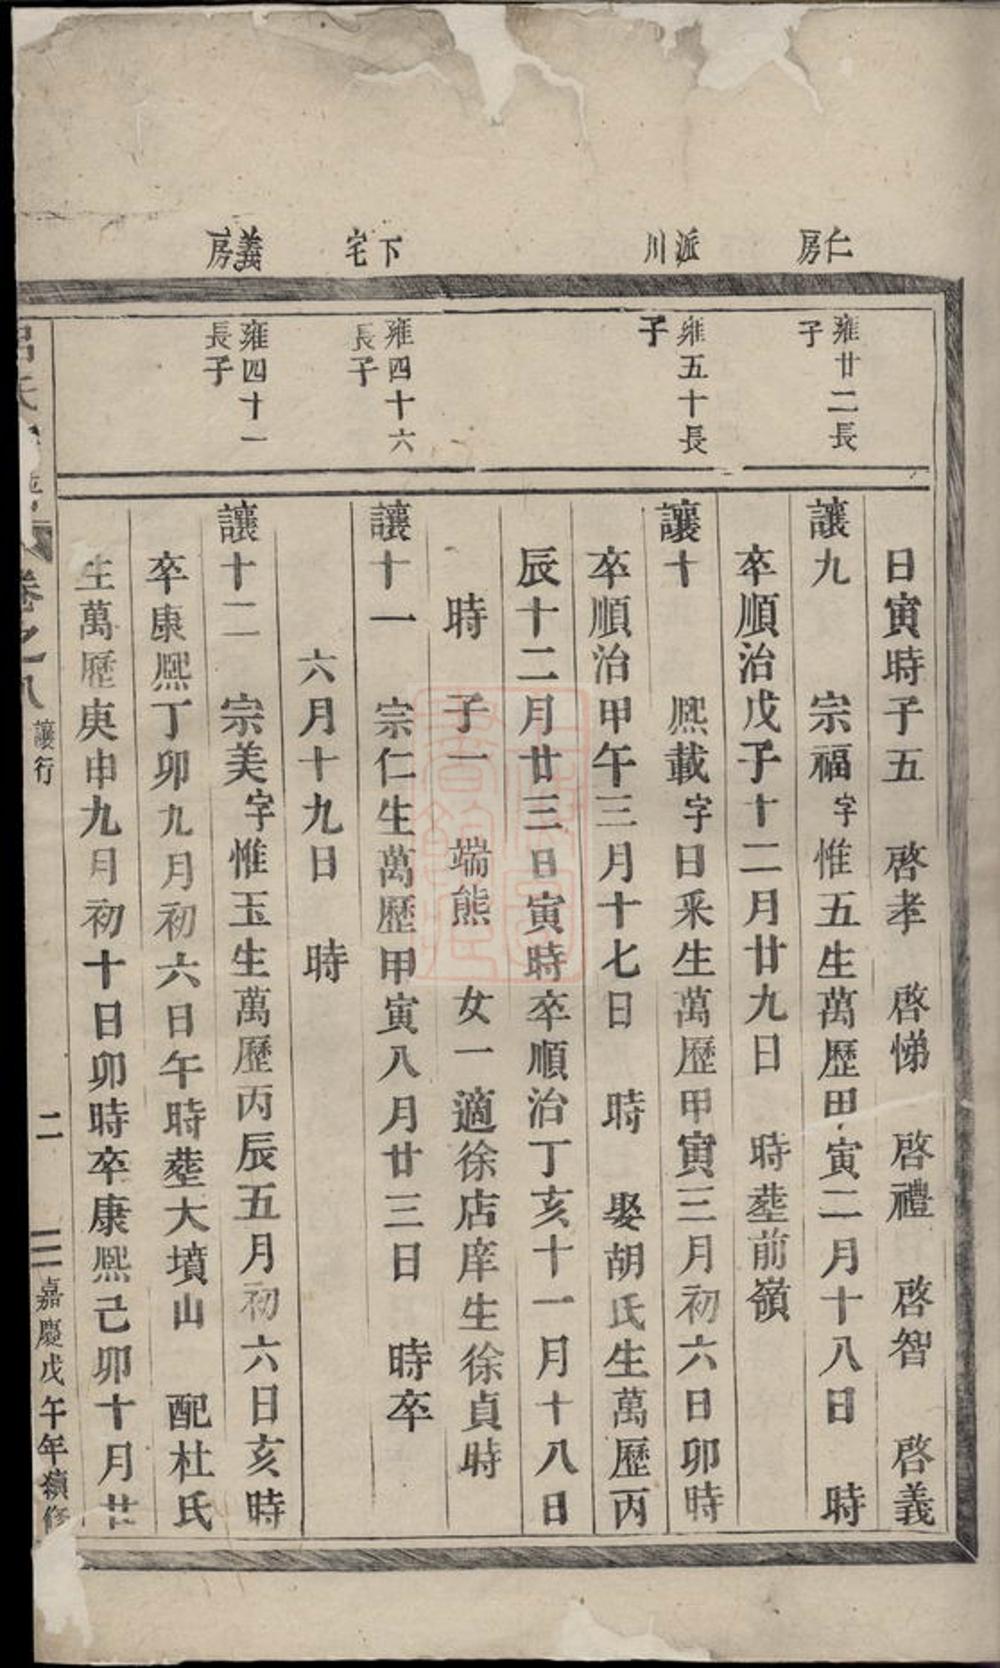 仁房
派川
下宅
義房
雍廿二長
子
雍五十長
子
雍四十六
長子
雍四十一
長子
日寅時子五 啓孝 啓悌 啓禮 啓智 啓義
讓九 宗福字惟五生萬歷甲寅二月十八日 時
卒順治戊子十二月廿九日 時塟前嶺
讓十 熙載字日采生萬歷甲寅三月初六日卯時
卒順治甲午三月十七日 時 娶胡氏生萬歷丙
辰十二月廿三日寅時卒順治丁亥十一月十八日
時 子一 端熊 女一適徐店庠生徐貞時
讓十一 宗仁生萬歷甲寅八月廿三日 時卒
六月十九日 時
讓十二 宗美字惟玉生萬歷丙辰五月初六日亥時
卒康熙丁卯九月初六日午時塟大墳山 配杜氏
生萬歷庚申九月初十日卯時卒康熙己卯十月廿
卷之八 讓行 二 嘉慶戊午年續修